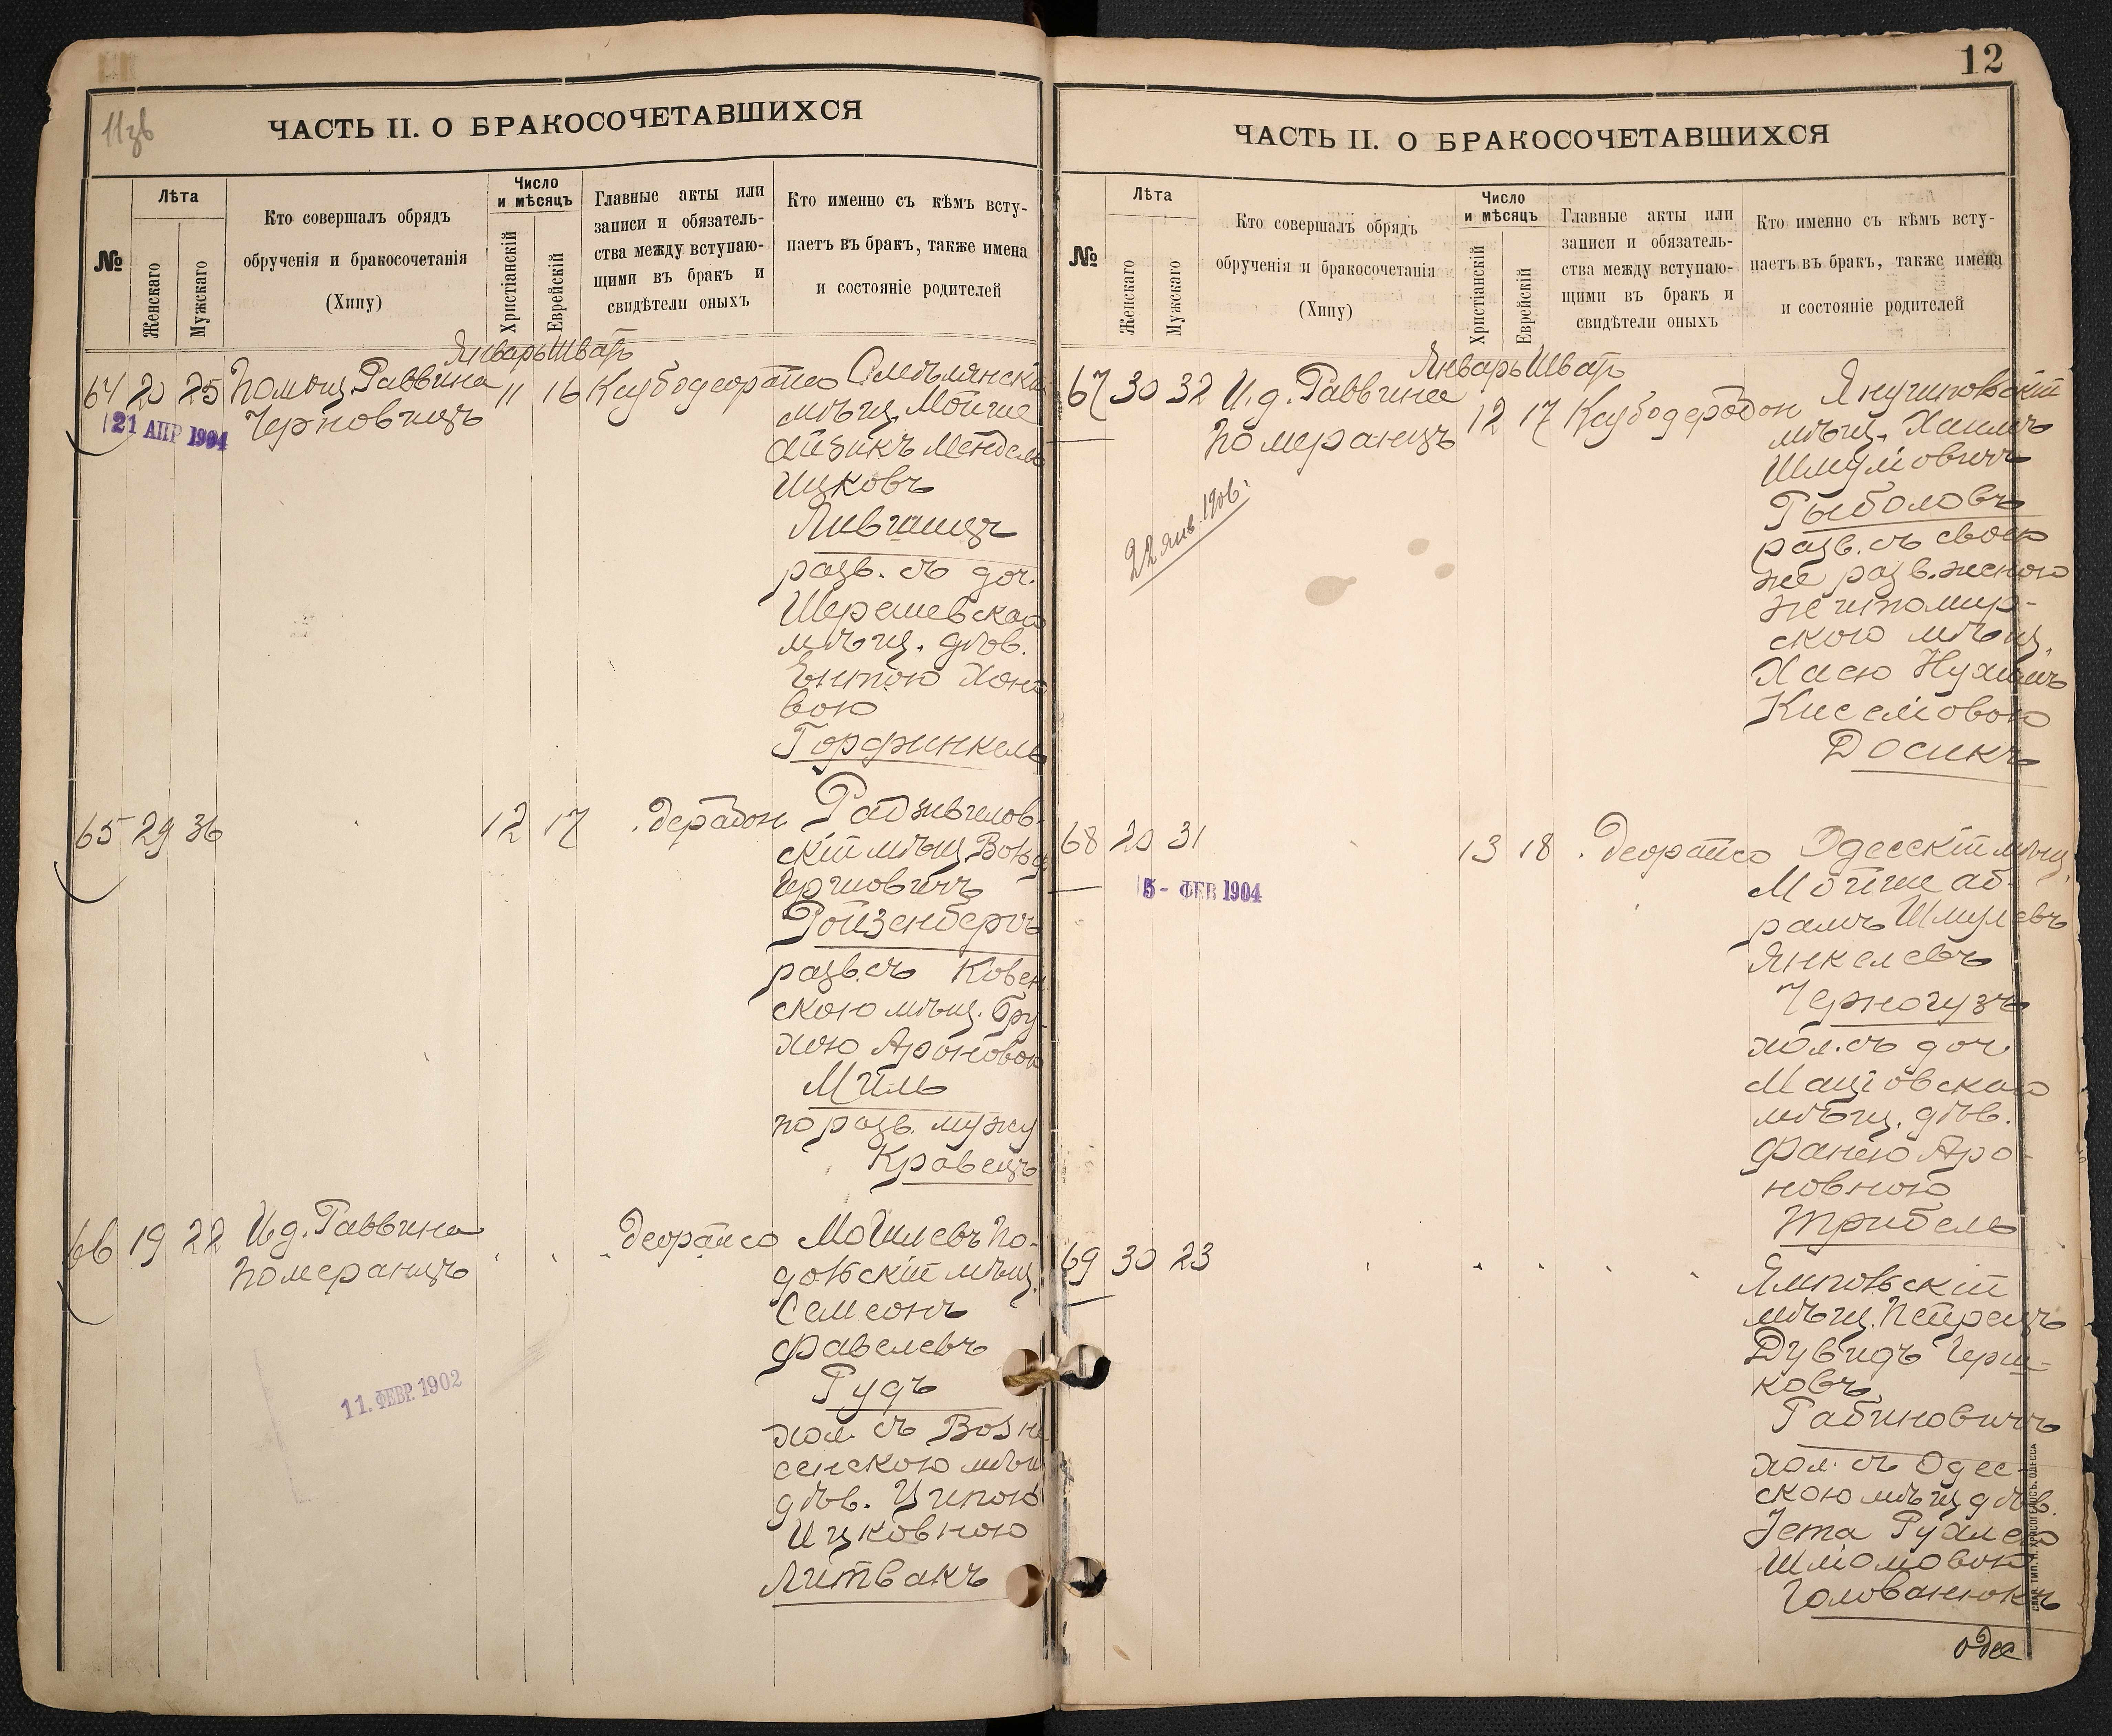 11зв
ЧАСТЬ II. О БРАКОСОЧЕТАВШИХСЯ
№
Лѣта
Женскаго
Мужскаго
Кто совершалъ обрядъ
обрученія и бракосочетанія
(Хипу)
Число
и мѣсяцъ
Христіанскій
Еврейскій
Главные акты или
записи и обязатель-
ства между вступаю-
щими въ бракъ и
свидѣтели оныхъ
Кто именно съ кѣмъ всту-
паетъ въ бракъ, также имена
и состояніе родителей
Январь Шватъ
64 20 25 Помощ. Раввина 11 16
Черновицъ
21 АПР 1904
мѣщ. Мойше
Айзикъ Мендель
Ицковъ
Лившицъ
разв. съ доч.
Шерешевскаго
мѣщ. дѣв.
Ентою Хоно
вою
Горфинкель
65 29 36 12 17
Радзивилов-
скій мѣщ. Вольф
Гершовичъ
Ройзенбергъ
разв. съ Ковен
скою мѣщ. Бру
хою Ароновою
Миль
по разв. мужу
Кравецъ
66 19 22 И.д. Раввина
Померанцъ
Могилевъ По-
дольскій мѣщ.
Симеонъ
Фавелевъ
Рудъ
хол. съ Возне
сенскою мѣщ
дѣв. Ципою
Ицковною
Литвакъ
11. ФЕВР. 1902
12
ЧАСТЬ II. О БРАКОСОЧЕТАВШИХСЯ
№
Лѣта
Женскаго
Мужскаго
Кто совершалъ обрядъ
обрученія и бракосочетанія
(Хипу)
Число
и мѣсяцъ
Христіанскій
Еврейскій
Главные акты или
записи и обязатель-
ства между вступаю-
щими въ бракъ и
свидѣтели оныхъ
Кто именно съ кѣмъ всту-
паетъ въ бракъ, также имена
и состояніе родителей
Январь Шватъ
67 30 32 И.д. Раввина 12 17
Померанцъ
22 янв. 1906.
Янушповскій
мѣщ. Хаимъ
Шмулiовичъ
Рыболовъ
разв. съ своею
же разв. женою
житомир-
скою мѣщ.
Хасю Нухимъ
Киселіовою
Досикъ
68 20 31 13 18
5 - ФЕВ 1904
Одесскій мѣщ.
Мойше Аб-
рамъ Шмулевъ
Янкелевъ
Черногузъ
хол. съ доч
Маціовскаго
мѣщ. дѣв.
Фанею Аро-
новною
Трибель
69 30 23
Ямпольскій
мѣщ. Петрецъ
Дувидъ Герш-
ковъ
Рабиновичъ
хол. съ Одес-
скою мѣщ дѣв.
Іета Рухлею
Шліомовою
Голованюкъ
одес